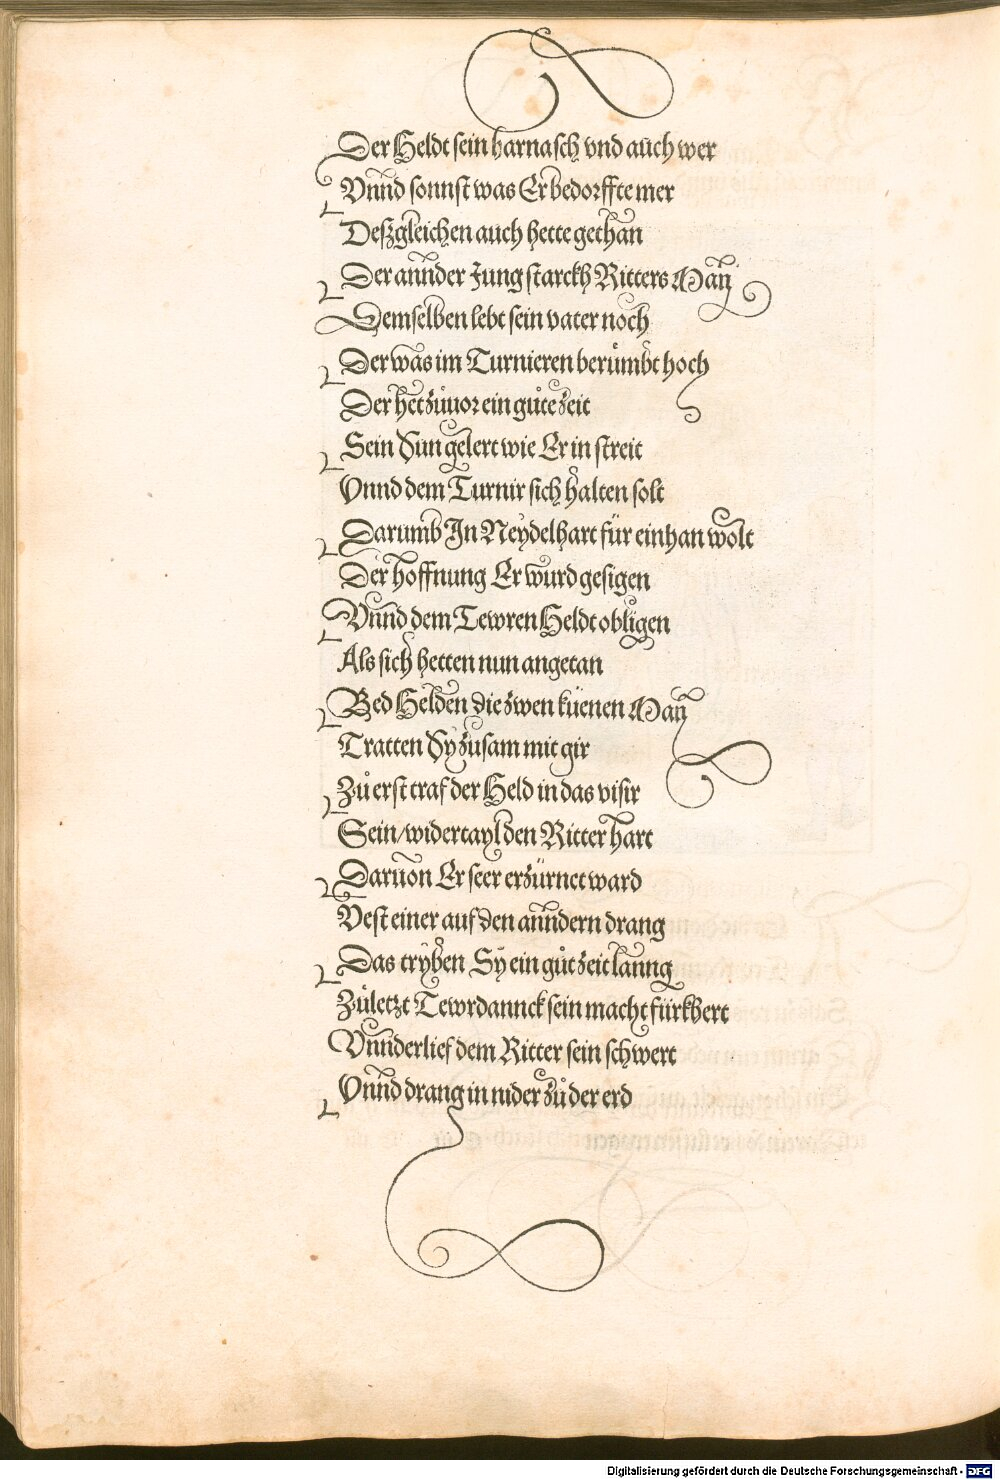 Der Heldt sein harnasch vnd aůch wer
Vnnd sonnst was Er bedorffte mer
Deßgleichen auch hette gethan
Der annder Jung starckh Ritters Man
Demselben lebt sein vater noch
Der was im Turnieren berůmbt hoch
Der het zůuor ein gůte zeit
Sein Sun gelert wie Er in streit
Vnnd dem Turnir sich halten solt
Darumb In Neydelhart für ein han wolt
Der hoffnung Er wurd gesigen
Vnnd dem Tewren Heldt obligen
Als sich hetten nun angetan
Bed Helden die zwen küenen Man
Tratten Sy zusam mit gir
Zů erst traf der Held in das visir
Sein/widertayl den Ritter hart
Daruon Er seer erzürnet ward
Vest einer auf den anndern drang
Das tryben Sy ein gůt zeit lanng
Zůletzt Tewrdannck sein macht fürkhert
Vnnderlief dem Ritter sein schwert
Vnnd drang in nider zů der erd
Digitalisierung gefördert durch die Deutsche Forschungsgemeinschaft - DFG